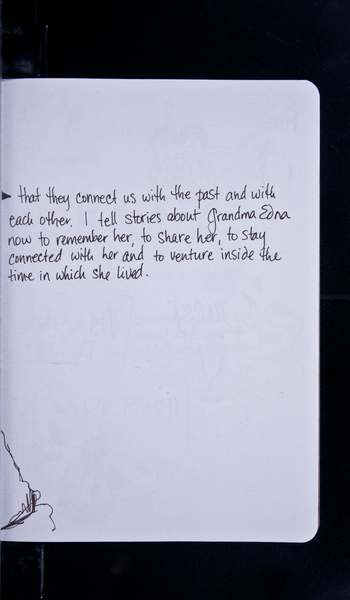 that they connect us with the past and with
each other. I tell stories about Grandma Edna
now to remember her, to share her, to stay
connected with her and to venture inside the
time in which she lived.